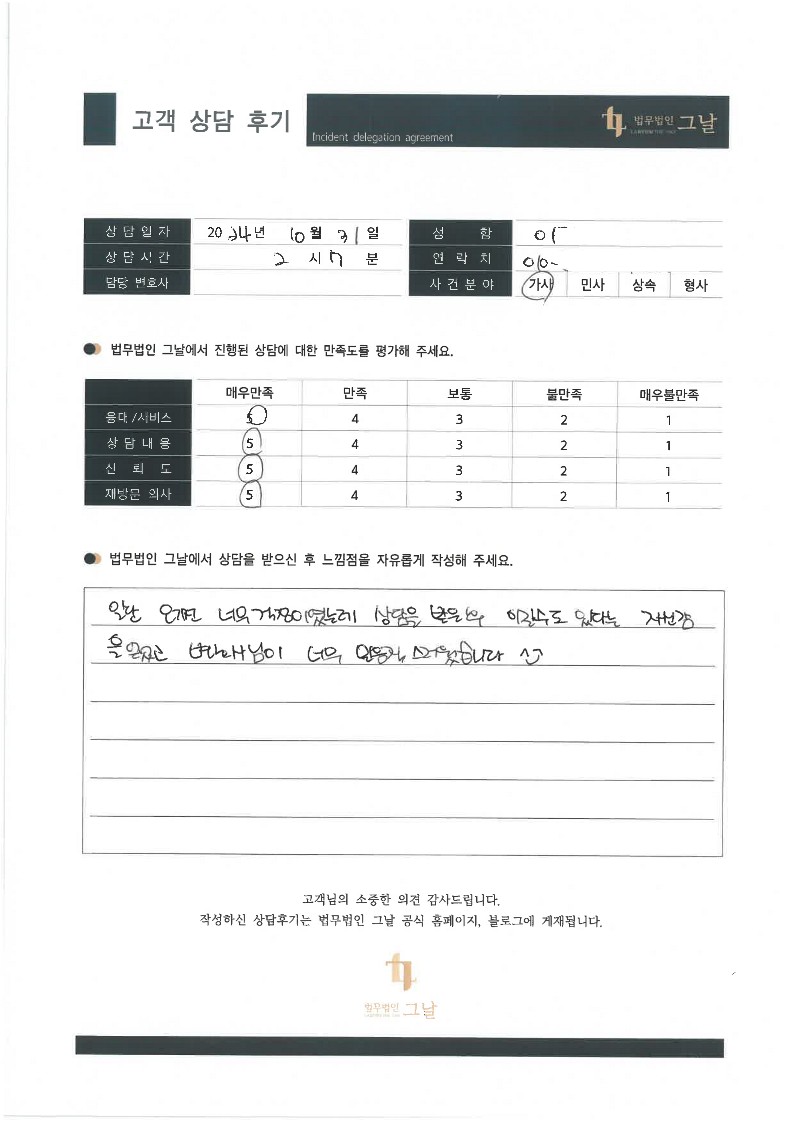 고객 상담 후기
Incident delegation agreement
법무법인 그날
상담일자 2024년 10월 31일
성 함 이
상담시간 2시 17분
연 락 처 010-
담당 변호사
사건분야 가사 민사 상속 형사
법무법인 그날에서 진행된 상담에 대한 만족도를 평가해 주세요.
매우만족 만족 보통 불만족 매우불만족
응대/서비스 5 4 3 2 1
상담내용 5 4 3 2 1
신 뢰 도 5 4 3 2 1
재방문 의사 5 4 3 2 1
법무법인 그날에서 상담을 받으신 후 느낌점을 자유롭게 작성해 주세요.
일단 오기전 너무 걱정이였는데 상담을 받은 후 이길수도 있다는 자신감
을 얻었고 변호사님이 너무 스러웠습니다 ^^
고객님의 소중한 의견 감사드립니다.
작성하신 상담후기는 법무법인 그날 공식 홈페이지, 블로그에 게재됩니다.
법무법인 그날